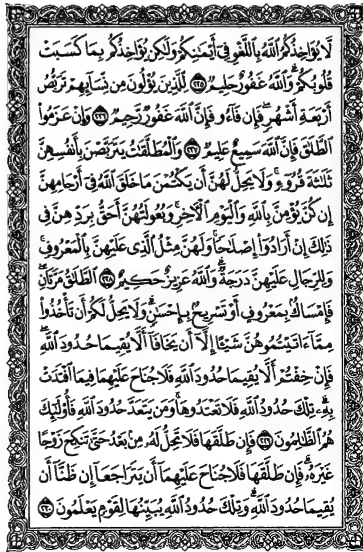 لَّا يُؤَاخِذُكُمُ ٱللَّهُ بِٱللَّغْوِ فِىٓ أَيْمَٰنِكُمْ وَلَٰكِن يُؤَاخِذُكُم بِمَا كَسَبَتْ
قُلُوبُكُمْ وَٱللَّهُ غَفُورٌ حَلِيمٌ ٢٢٥ لِّلَّذِينَ يُؤْلُونَ مِن نِّسَآئِهِمْ تَرَبُّصُ
أَرْبَعَةِ أَشْهُرٍ فَإِن فَآءُو فَإِنَّ ٱللَّهَ غَفُورٌ رَّحِيمٌ ٢٢٦ وَإِنْ عَزَمُوا۟
ٱلطَّلَٰقَ فَإِنَّ ٱللَّهَ سَمِيعٌ عَلِيمٌ ٢٢٧ وَٱلْمُطَلَّقَٰتُ يَتَرَبَّصْنَ بِأَنفُسِهِنَّ
ثَلَٰثَةَ قُرُوٓءٍ وَلَا يَحِلُّ لَهُنَّ أَن يَكْتُمْنَ مَا خَلَقَ ٱللَّهُ فِىٓ أَرْحَامِهِنَّ
إِن كُنَّ يُؤْمِنَّ بِٱللَّهِ وَٱلْيَوْمِ ٱلْءَاخِرِ وَبُعُولَتُهُنَّ أَحَقُّ بِرَدِّهِنَّ فِى
ذَٰلِكَ إِنْ أَرَادُوٓا۟ إِصْلَٰحًا وَلَهُنَّ مِثْلُ ٱلَّذِى عَلَيْهِنَّ بِٱلْمَعْرُوفِ
وَلِلرِّجَالِ عَلَيْهِنَّ دَرَجَةٌ وَٱللَّهُ عَزِيزٌ حَكِيمٌ ٢٢٨ ٱلطَّلَٰقُ مَرَّتَانِ
فَإِمْسَاكٌۢ بِمَعْرُوفٍ أَوْ تَسْرِيحٌۢ بِإِحْسَٰنٍ وَلَا يَحِلُّ لَكُمْ أَن تَأْخُذُوا۟
مِمَّآ ءَاتَيْتُمُوهُنَّ شَيْـًٔا إِلَّآ أَن يَخَافَآ أَلَّا يُقِيمَا حُدُودَ ٱللَّهِ
فَإِنْ خِفْتُمْ أَلَّا يُقِيمَا حُدُودَ ٱللَّهِ فَلَا جُنَاحَ عَلَيْهِمَا فِيمَا ٱفْتَدَتْ
بِهِۦ تِلْكَ حُدُودُ ٱللَّهِ فَلَا تَعْتَدُوهَا وَمَن يَتَعَدَّ حُدُودَ ٱللَّهِ فَأُو۟لَٰٓئِكَ
هُمُ ٱلظَّٰلِمُونَ ٢٢٩ فَإِن طَلَّقَهَا فَلَا تَحِلُّ لَهُۥ مِنۢ بَعْدُ حَتَّىٰ تَنكِحَ زَوْجًا
غَيْرَهُۥ فَإِن طَلَّقَهَا فَلَا جُنَاحَ عَلَيْهِمَآ أَن يَتَرَاجَعَآ إِن ظَنَّآ أَن
يُقِيمَا حُدُودَ ٱللَّهِ وَتِلْكَ حُدُودُ ٱللَّهِ يُبَيِّنُهَا لِقَوْمٍ يَعْلَمُونَ ٢٣٠